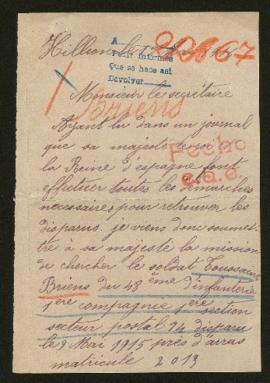 Hillion le
A
Pedir informes
Que se hace así
Devolver
Monsieur le secrétaire
Briens
Ayant lu dans un journal
que sa majesté
la Reine d'espagne font
effectuer toutes les démarches
nécessaires pour retrouver les
disparus, je viens donc soumet-
tre à sa majesté la mission
de chercher le soldat Toussaint
Briens du 48 ème d'infanterie
1ère compagnie 1ère section
secteur postal 24 disparu
le 9 Mai 1915 près d'arras
matricule 2013
Fecho